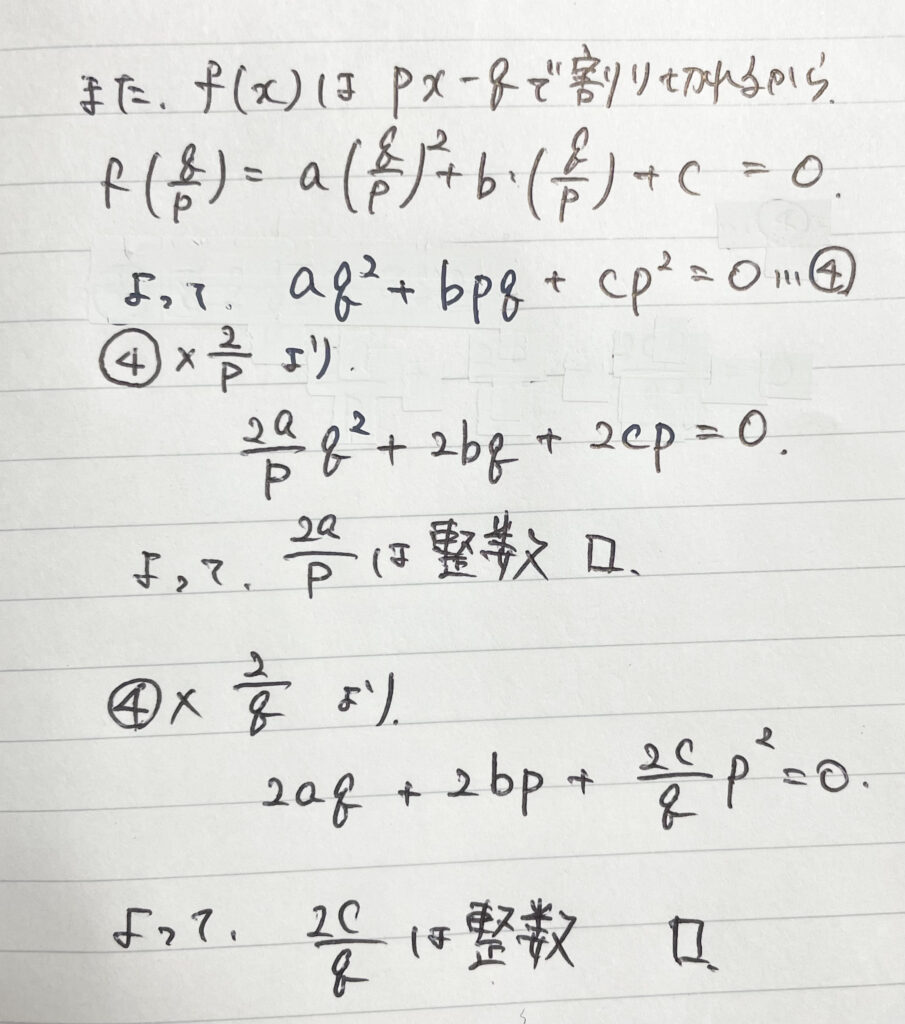 また、f(x)は px-qで割りきれるから.
f(q/p) = a(q/p)²+b・(q/p)+c = 0.
よって. aq²+bpq+cp²=0…④
④×2/p より.
2a/p q²+2bq+2cp=0.
よって. 2a/p は整数 □.
④×2/q より.
2aq+2bp+2c/q p²=0.
よって. 2c/q は整数 □